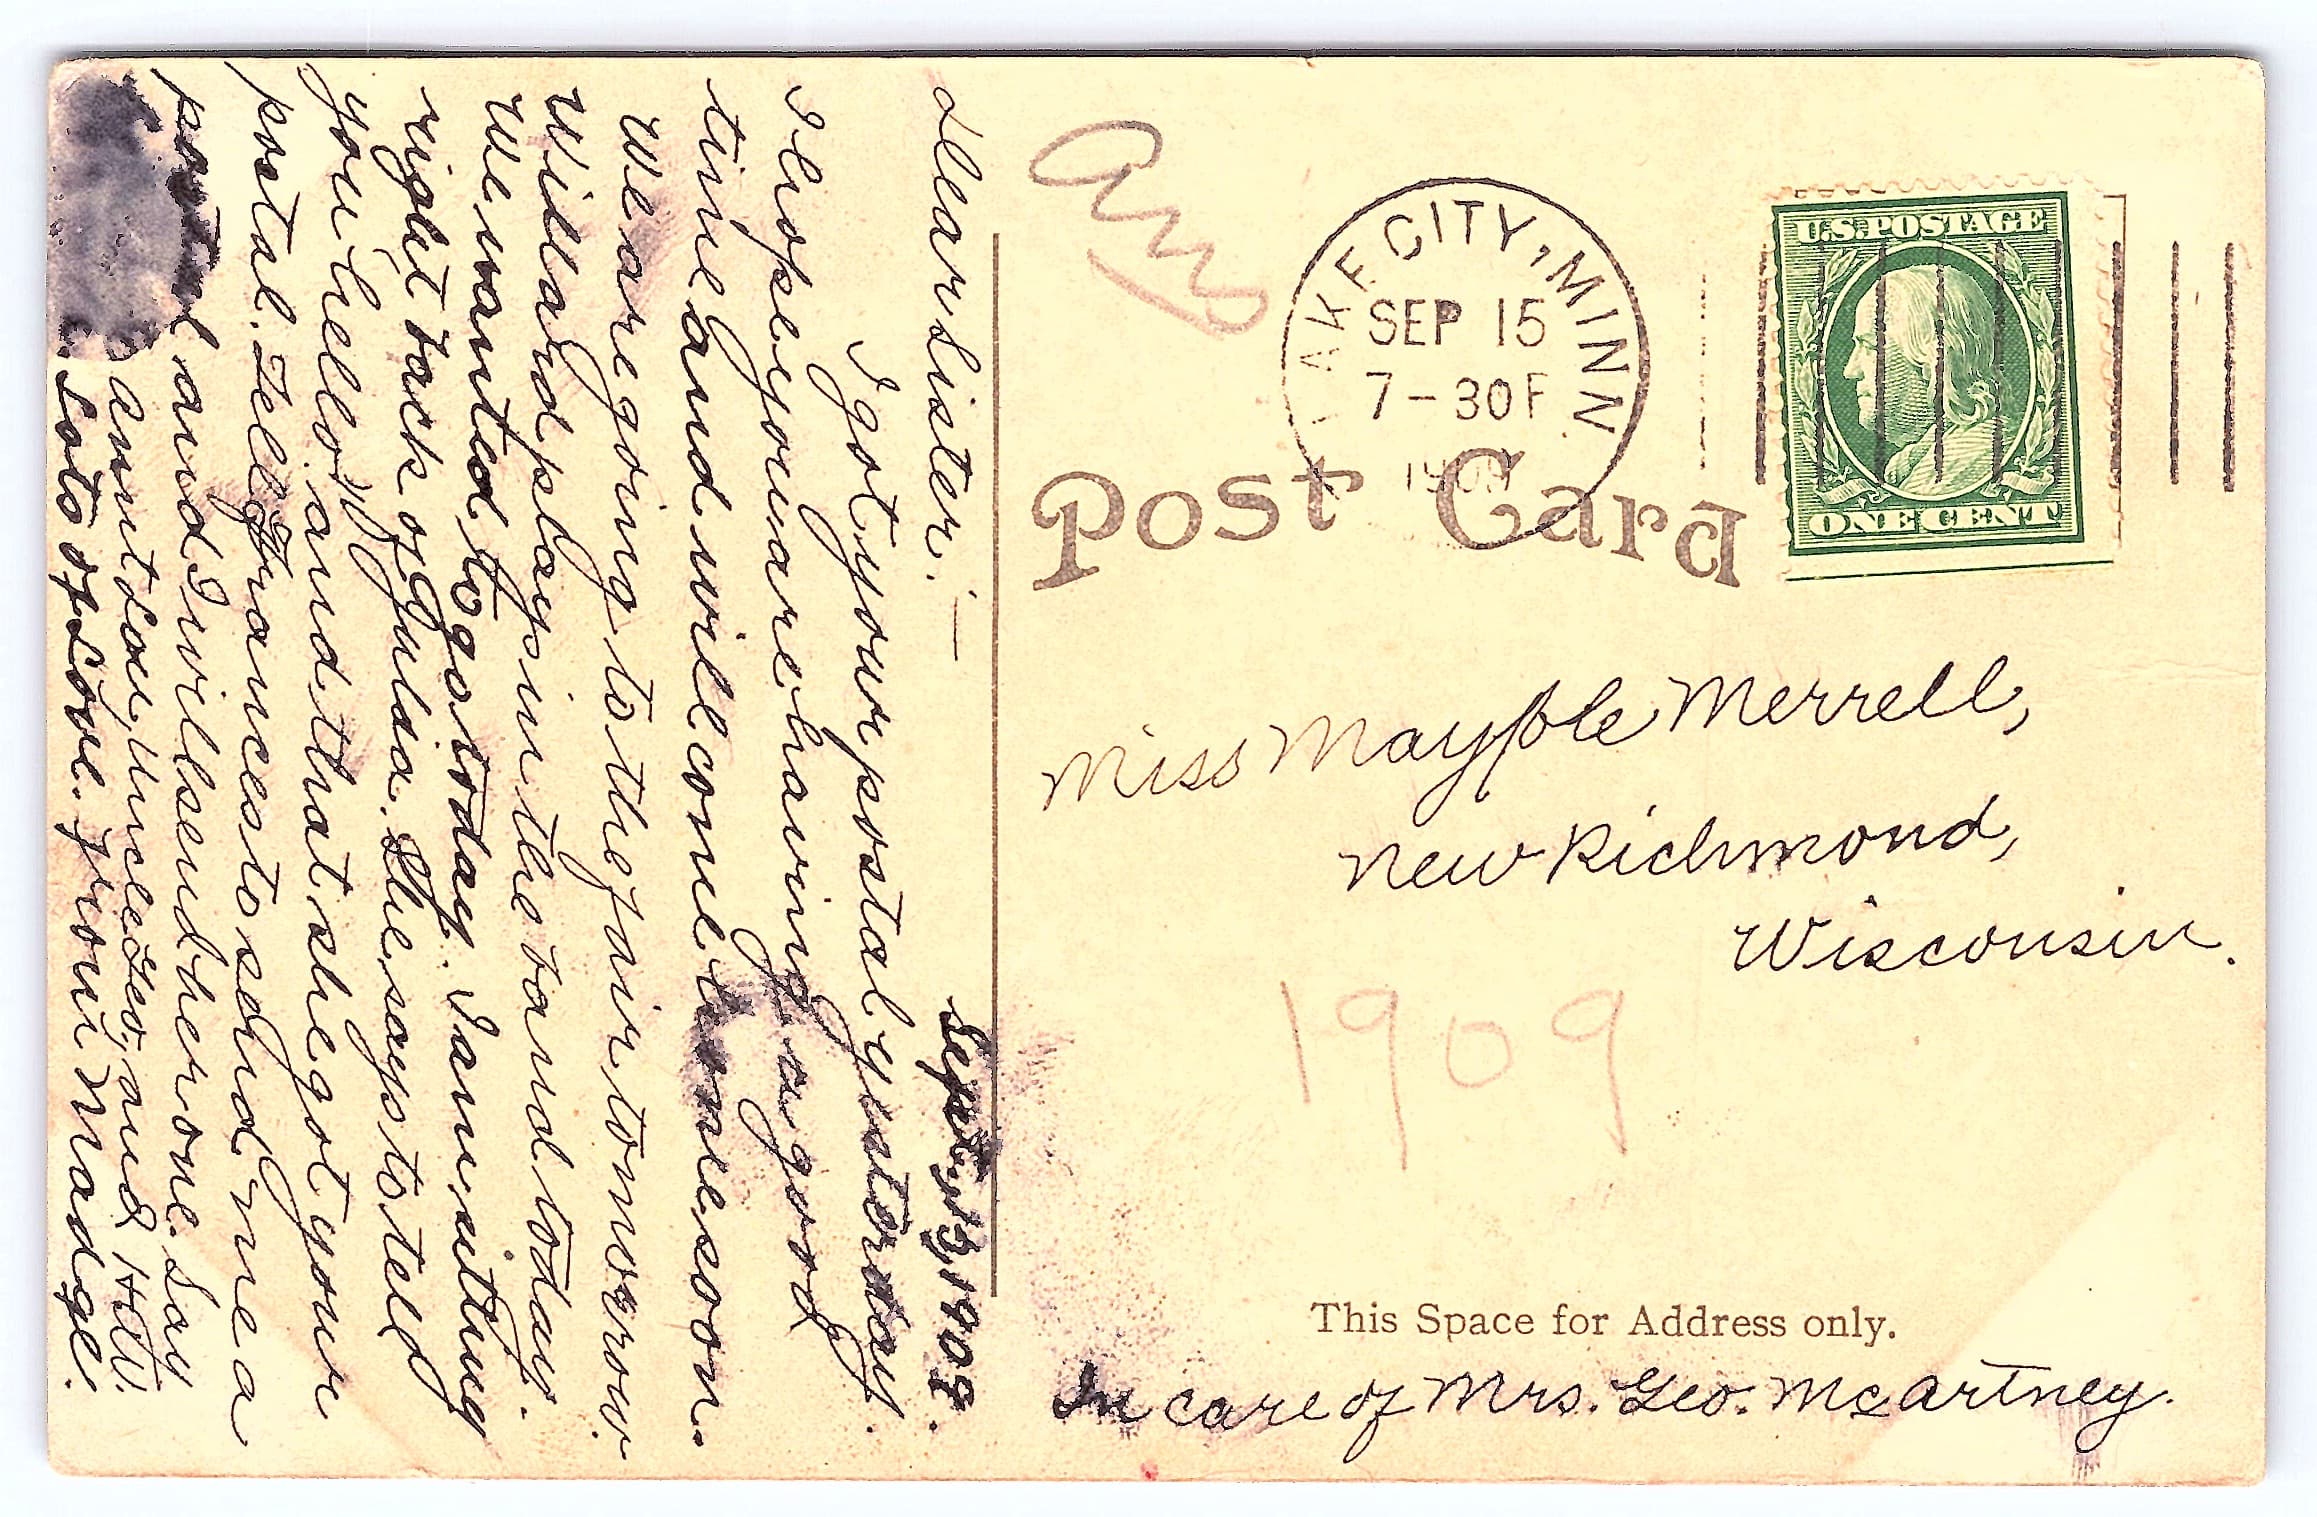 Sept. 15, 1909.
Dear Sister:—
I got your postal yesterday.
I hope you are having a good
time and will come home soon.
We are going to the fair tomorrow.
Willard plays in the band today.
We wanted to go today. I am sitting
right back of Julda. She says to tell
you "hello", and that she got your
postal. Tell Frances to send me a
postal and I will send her one. Say
aunt Lou, Uncle Geo, and H.W.
Lots of Love. From Madge.
ans
LAKE CITY, MINN
SEP 15
7-30P
1909
U.S. POSTAGE
ONE CENT
Post Card
Miss Mayble Merrell,
New Richmond,
Wisconsin.
1909
This Space for Address only.
In care of Mrs. Geo. McCartney.